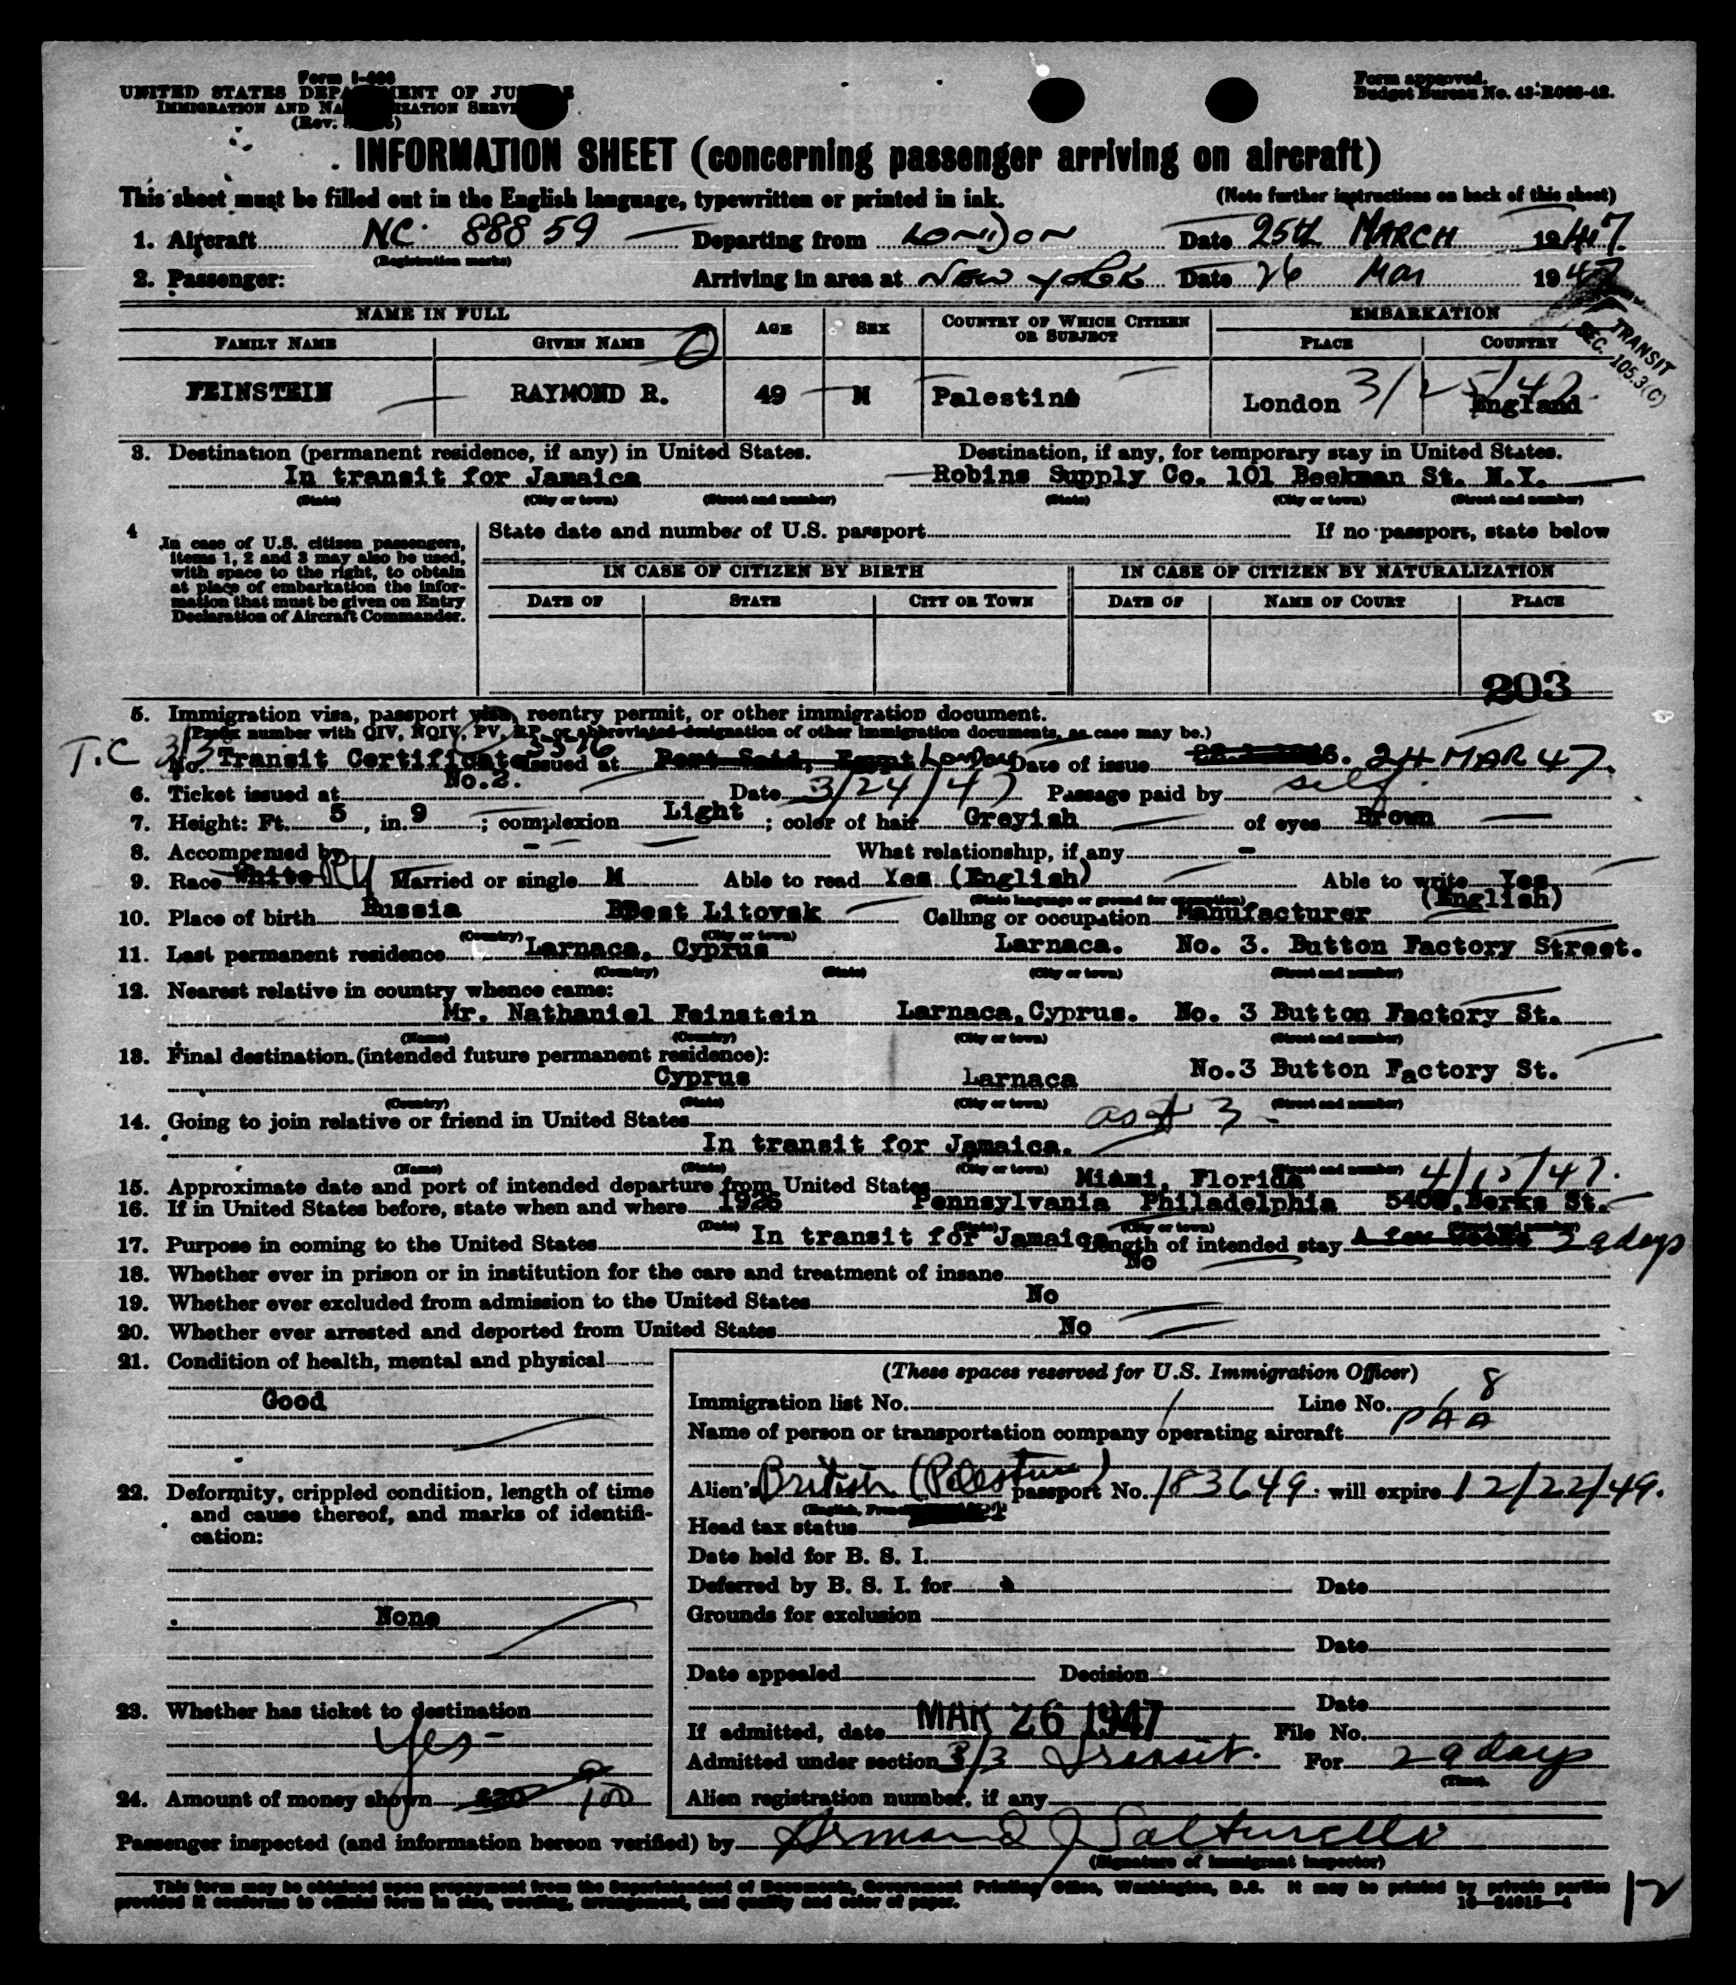 Form I-466
UNITED STATES DEPARTMENT OF JUSTICE
IMMIGRATION AND NATURALIZATION SERVICE
(Rev.
Form approved.
Budget Bureau No. 43-R063-42.
INFORMATION SHEET (concerning passenger arriving on aircraft)
This sheet must be filled out in the English language, typewritten or printed in ink. (Note further instructions on back of this sheet)
1. Aircraft NC. 88859 Departing from LONDON Date 25th MARCH 1947.
(Registration marks)
2. Passenger: Arriving in area at NEW YORK Date 26 Mar 1947
NAME IN FULL AGE SEX COUNTRY OF WHICH CITIZEN OR SUBJECT EMBARKATION
FAMILY NAME GIVEN NAME PLACE COUNTRY
TRANSIT
SEC. 105.3(C)
FEINSTEIN RAYMOND R. 49 M Palestine London 3/25/47 England
3. Destination (permanent residence, if any) in United States. Destination, if any, for temporary stay in United States.
In transit for Jamaica Robins Supply Co. 101 Beekman St. N.Y.
(State) (City or town) (Street and number) (State) (City or town) (Street and number)
4 In case of U.S. citizen passengers, items 1, 2 and 3 may also be used, with space to the right, to obtain at place of embarkation the information that must be given on Entry Declaration of Aircraft Commander.
State date and number of U.S. passport If no passport, state below
IN CASE OF CITIZEN BY BIRTH IN CASE OF CITIZEN BY NATURALIZATION
DATE OF STATE CITY OR TOWN DATE OF NAME OF COURT PLACE
203
5. Immigration visa, passport visa, reentry permit, or other immigration document.
(Prefix number with QIV, NQIV, PV, RP, or abbreviated designation of other immigration documents, as case may be.)
T.C 3/3 No. Transit Certificate 5576 Issued at Port Said, Egypt London Date of issue 24 MAR 47.
No.2.
6. Ticket issued at Date 3/24/47 Passage paid by self.
7. Height: Ft. 5, in. 9; complexion Light; color of hair Greyish of eyes Brown
8. Accompanied by - What relationship, if any -
9. Race White Married or single M Able to read Yes (English) Able to write Yes
(State language or ground for exemption) (English)
10. Place of birth Russia Brest Litovsk Calling or occupation Manufacturer
(Country) (City or town)
11. Last permanent residence Larnaca, Cyprus Larnaca. No. 3. Button Factory Street.
(Country) (State) (City or town) (Street and number)
12. Nearest relative in country whence came:
Mr. Nathaniel Feinstein Larnaca, Cyprus. No. 3 Button Factory St.
(Name) (Country) (City or town) (Street and number)
13. Final destination (intended future permanent residence):
Cyprus Larnaca No.3 Button Factory St.
(Country) (State) (City or town) (Street and number)
14. Going to join relative or friend in United States as # 3 -
In transit for Jamaica.
(Name) (State) (City or town) (Street and number)
15. Approximate date and port of intended departure from United States Miami, Florida 4/15/47.
16. If in United States before, state when and where 1926 Pennsylvania Philadelphia 5408, Berks St.
(Date) (State) (City or town) (Street and number)
17. Purpose in coming to the United States In transit for Jamaica Length of intended stay A few weeks 29 days
18. Whether ever in prison or in institution for the care and treatment of insane No
19. Whether ever excluded from admission to the United States No
20. Whether ever arrested and deported from United States No
21. Condition of health, mental and physical
Good
22. Deformity, crippled condition, length of time and cause thereof, and marks of identification:
None
23. Whether has ticket to destination
Yes -
24. Amount of money shown £20 100
(These spaces reserved for U.S. Immigration Officer)
Immigration list No. 1 Line No. 8
Name of person or transportation company operating aircraft PAA
Alien's British (Palestine) passport No. 183649: will expire 12/22/49.
Head tax status
Date held for B. S. I.
Deferred by B. S. I. for Date
Grounds for exclusion
Date
Date appealed Decision
Date
If admitted, date MAR 26 1947 File No.
Admitted under section 3/3 Transit. For 29 days
(Time)
Alien registration number, if any
Passenger inspected (and information hereon verified) by Armand J Salturello
(Signature of immigrant inspector)
This form may be obtained upon prepayment from the Superintendent of Documents, Government Printing Office, Washington, D.C. It may be printed by private parties
provided it conforms to official form in size, wording, arrangement, and quality and color of paper. 16—24915—4
12